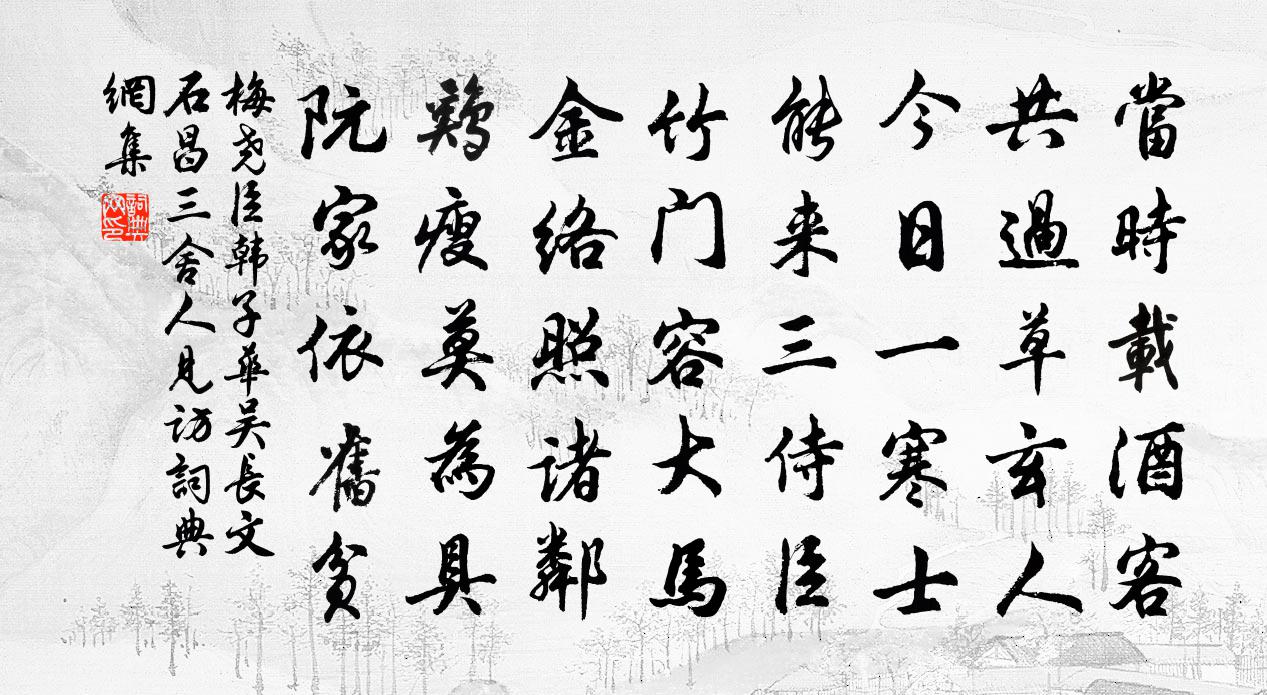 當時載酒客
共過草玄人
今日一寒士
能来三侍臣
竹門容大馬
金络照諸鄰
鷄瘦莫為具
阮家依舊貧
梅尧臣韩子華吴長文
石昌三舍人見访詞典
網集
詞典網印